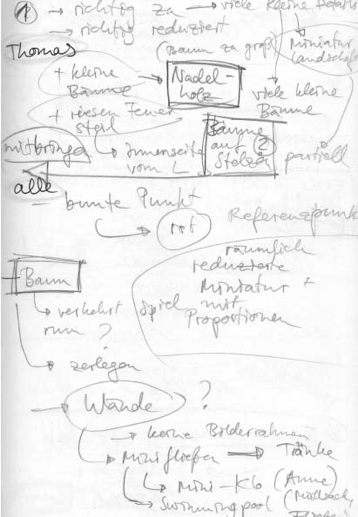 ① → richtig za → viele kleine Details
→ richtig reduziert
(Baum zu groß)
Miniatur
Landschaft
Thomas
+ kleine
Bäume
→ Nadel-
holz
viele kleine
Bäume
+ riesen
steil
Bäume
auf ②
Stelzen
partiell
mitbringen
→ Innenseite
vom L
alle
bunte Punkt
→ rot
Referenzpunkt
räumlich
reduzierte
Miniatur +
Spiel mit
Proportionen
Baum
→ verkehrt
rum ?
→ zerlegen
→ Wände ?
→ keine Bilderrahmen
→ Minifließen → Tränke
→ Mini-Klo (Anne)
→ Swimmingpool